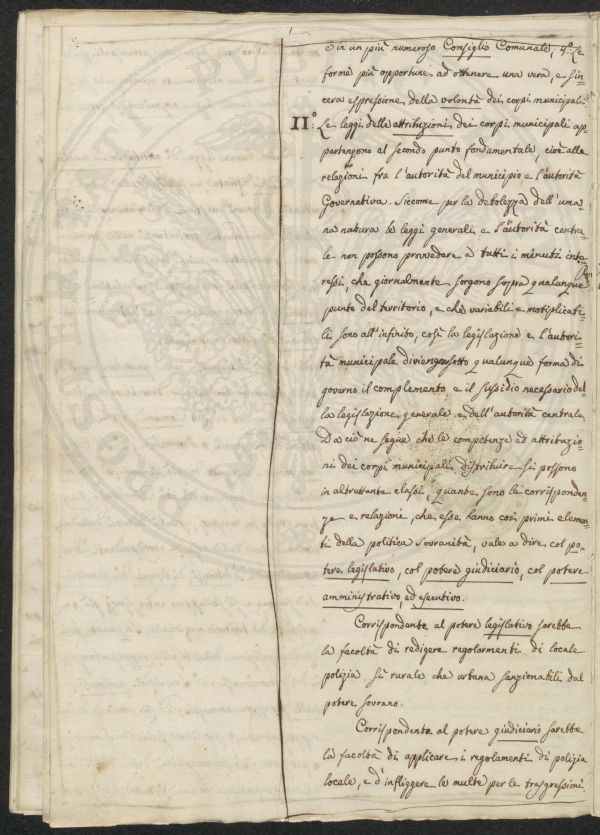 e in un più numeroso Consiglio Comunale; 4.° Le
forme più opportune ad ottenere una vera, e sin=
cera espressione della volontà dei corpi municipali.
II° Le leggi delle attribuzioni dei corpi municipali ap=
partengono al secondo punto fondamentale, cioè alle
relazioni fra l'autorità del municipio e l'autorità
Governativa. Siccome per la debolezza dell'uma=
na natura le leggi generali e l'autorità centra=
le non possono provvedere a tutti i minuti inte=
ressi, che giornalmente sorgono sopra qualunque
punto del territorio, e che variabili e moltiplicabi=
li sono all'infinito, così la legislazione e l'autori=
tà municipale sotto qualunque forma di
governo il complemento e il sussidio necessario del=
la legislazione generale e dell'autorità centrale.
Da ciò ne segue che le competenze ed attribuzio=
ni dei corpi municipali distribuire si possono
in altrettante classi, quante sono le corrisponden=
ze e relazioni, che esse hanno coi primi elemen=
ti della politica sovranità, vale a dire col po=
tere legislativo, col potere giudiciario, col potere
amministrativo, ed esecutivo.
Corrispondente al potere legislativo sarebbe
la facoltà di redigere regolarmenti di locale
polizia sì rurale che urbana sanzionabili dal
potere sovrano.
Corrispondente al potere giudiciario sarebbe
la facoltà di applicare i regolamenti di polizia
locale, e d'infliggere le multe per le trasgressioni